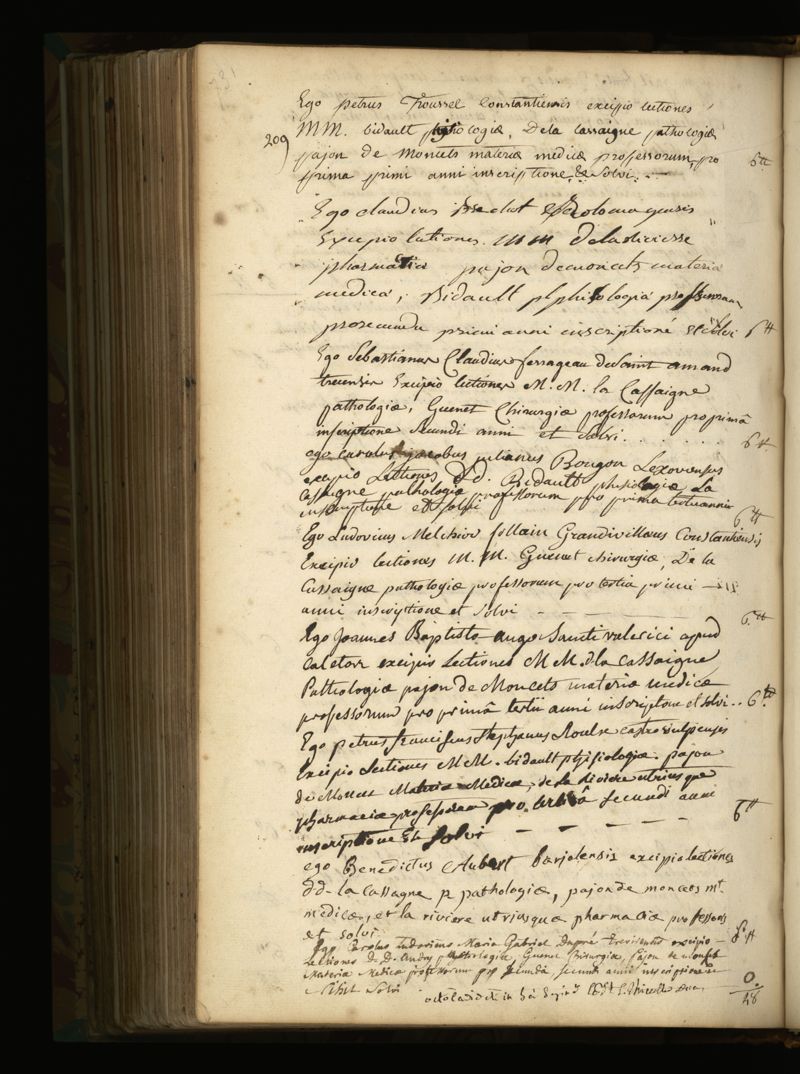 Ego petrus Troussel Constantiensis excipio lectiones
209 MM. bidault phisiologiæ, Dela cassaigne pathologiæ
pajon de Moncets materiæ medicæ professorum, pro 6tt
prima primi anni inscriptione, Et Solvi.
Ego claudius
Excipio lectiones. MM Delariviere
pharmatiæ pajon demoncets materia
medica, Bidault professorum
pro secunda primi anni inscriptione et solvi 6tt
Ego Sebastianus Claudius ferrageau deSaint amand
trecensis Excipio lectiones M.M. la Cassaigne
pathologiæ, Guenet Chirurgiæ professorum pro primâ
inscriptione secundi anni et solvi. 6tt
ego carolus jacobus julianus Bougon Lexovensis
excipio Lectiones DD. Bidault phisiologiæ La
Cassaigne pathologiæ professorum pro prima
inscriptione et solvi 6tt
Ego Ludovicus Melchior follain Grandivillæus Constantiensis
Excipio lectiones M.M. Guenet chirurgiæ, De la
Cassaigne pathologiæ professorum pro tertia primi
anni inscriptione et solvi 6tt
Ego Joannes Baptista ango Sancti valerici apud
caletos excipio Lectiones MM. dela Cassaigne
Pathologiæ pajon de Moncets materiæ medicæ
professorum pro primâ tertii anni inscriptione et solvi.. 6tt
Ego petrus franciscus stephanus
Excipio Lectiones MM. bidault phisiologiæ. pajon
de Moncets Materiæ Medicæ, de la riviere utriusque
pharmaciæ professorum pro tertiâ secundi anni
inscriptione Et solvi 6tt
ego Benedictus Aubert barjolensis excipio lectiones
dd. la Cassagne pathologiæ, pajon de moncets mt.
medicæ, et la riviere utriusque pharmaciæ professores
et solvi 6tt
Ego Carolus Ludovicus Maria Gabriel Dupré excipio
Lectiones D.D. Andry pathologiæ, Guenet Chirurgiæ, Pajon de Moncets
Materiæ Medicæ professorum pro secundâ secundi anni inscriptione et
Nihil Solvi 0.
48